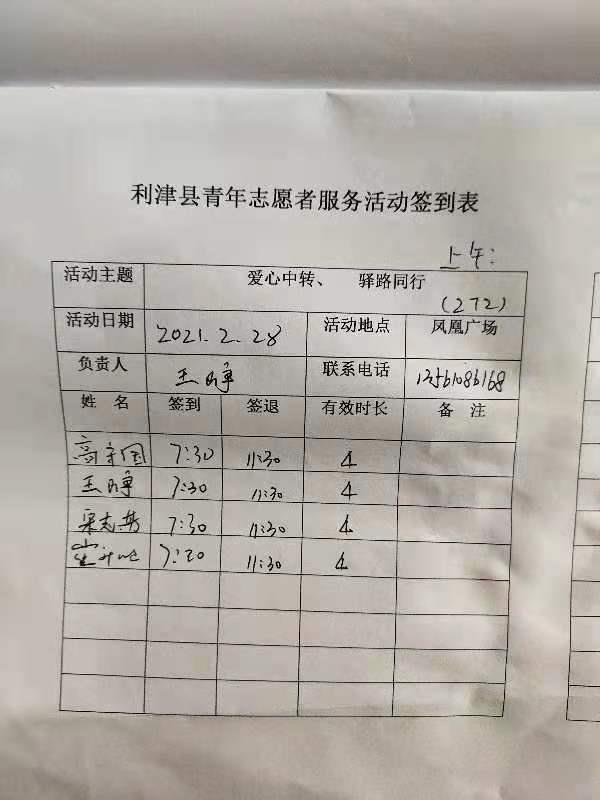 利津县青年志愿者服务活动签到表
上午:
活动主题 爱心中转、 驿路同行
(272)
活动日期 2021.2.28 活动地点 凤凰广场
负责人 王 联系电话 13561086168
姓 名 签到 签退 有效时长 备 注
高守国 7:30 11:30 4
王 7:30 11:30 4
7:30 11:30 4
崔 7:20 11:30 4